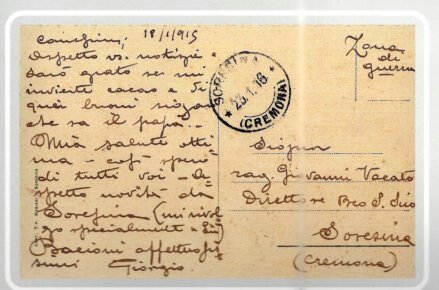 18/1/915
Carissimi,
Aspetto vs. notizie
sarò grato se mi
inviate cacao e di
quei buoni sigari
che sa il papà..
Mia salute otti
ma - così spero
di tutti voi - A
spetto novità da
Soresina (mi rivol
go specialmente a
Bacioni affettuosis
simi Giorgio
Zona
di
guerra
SORESINA
23.1.16
(CREMONA)
Signor
rag. Giovanni Vacato
Direttore
Soresina
(Cremona)